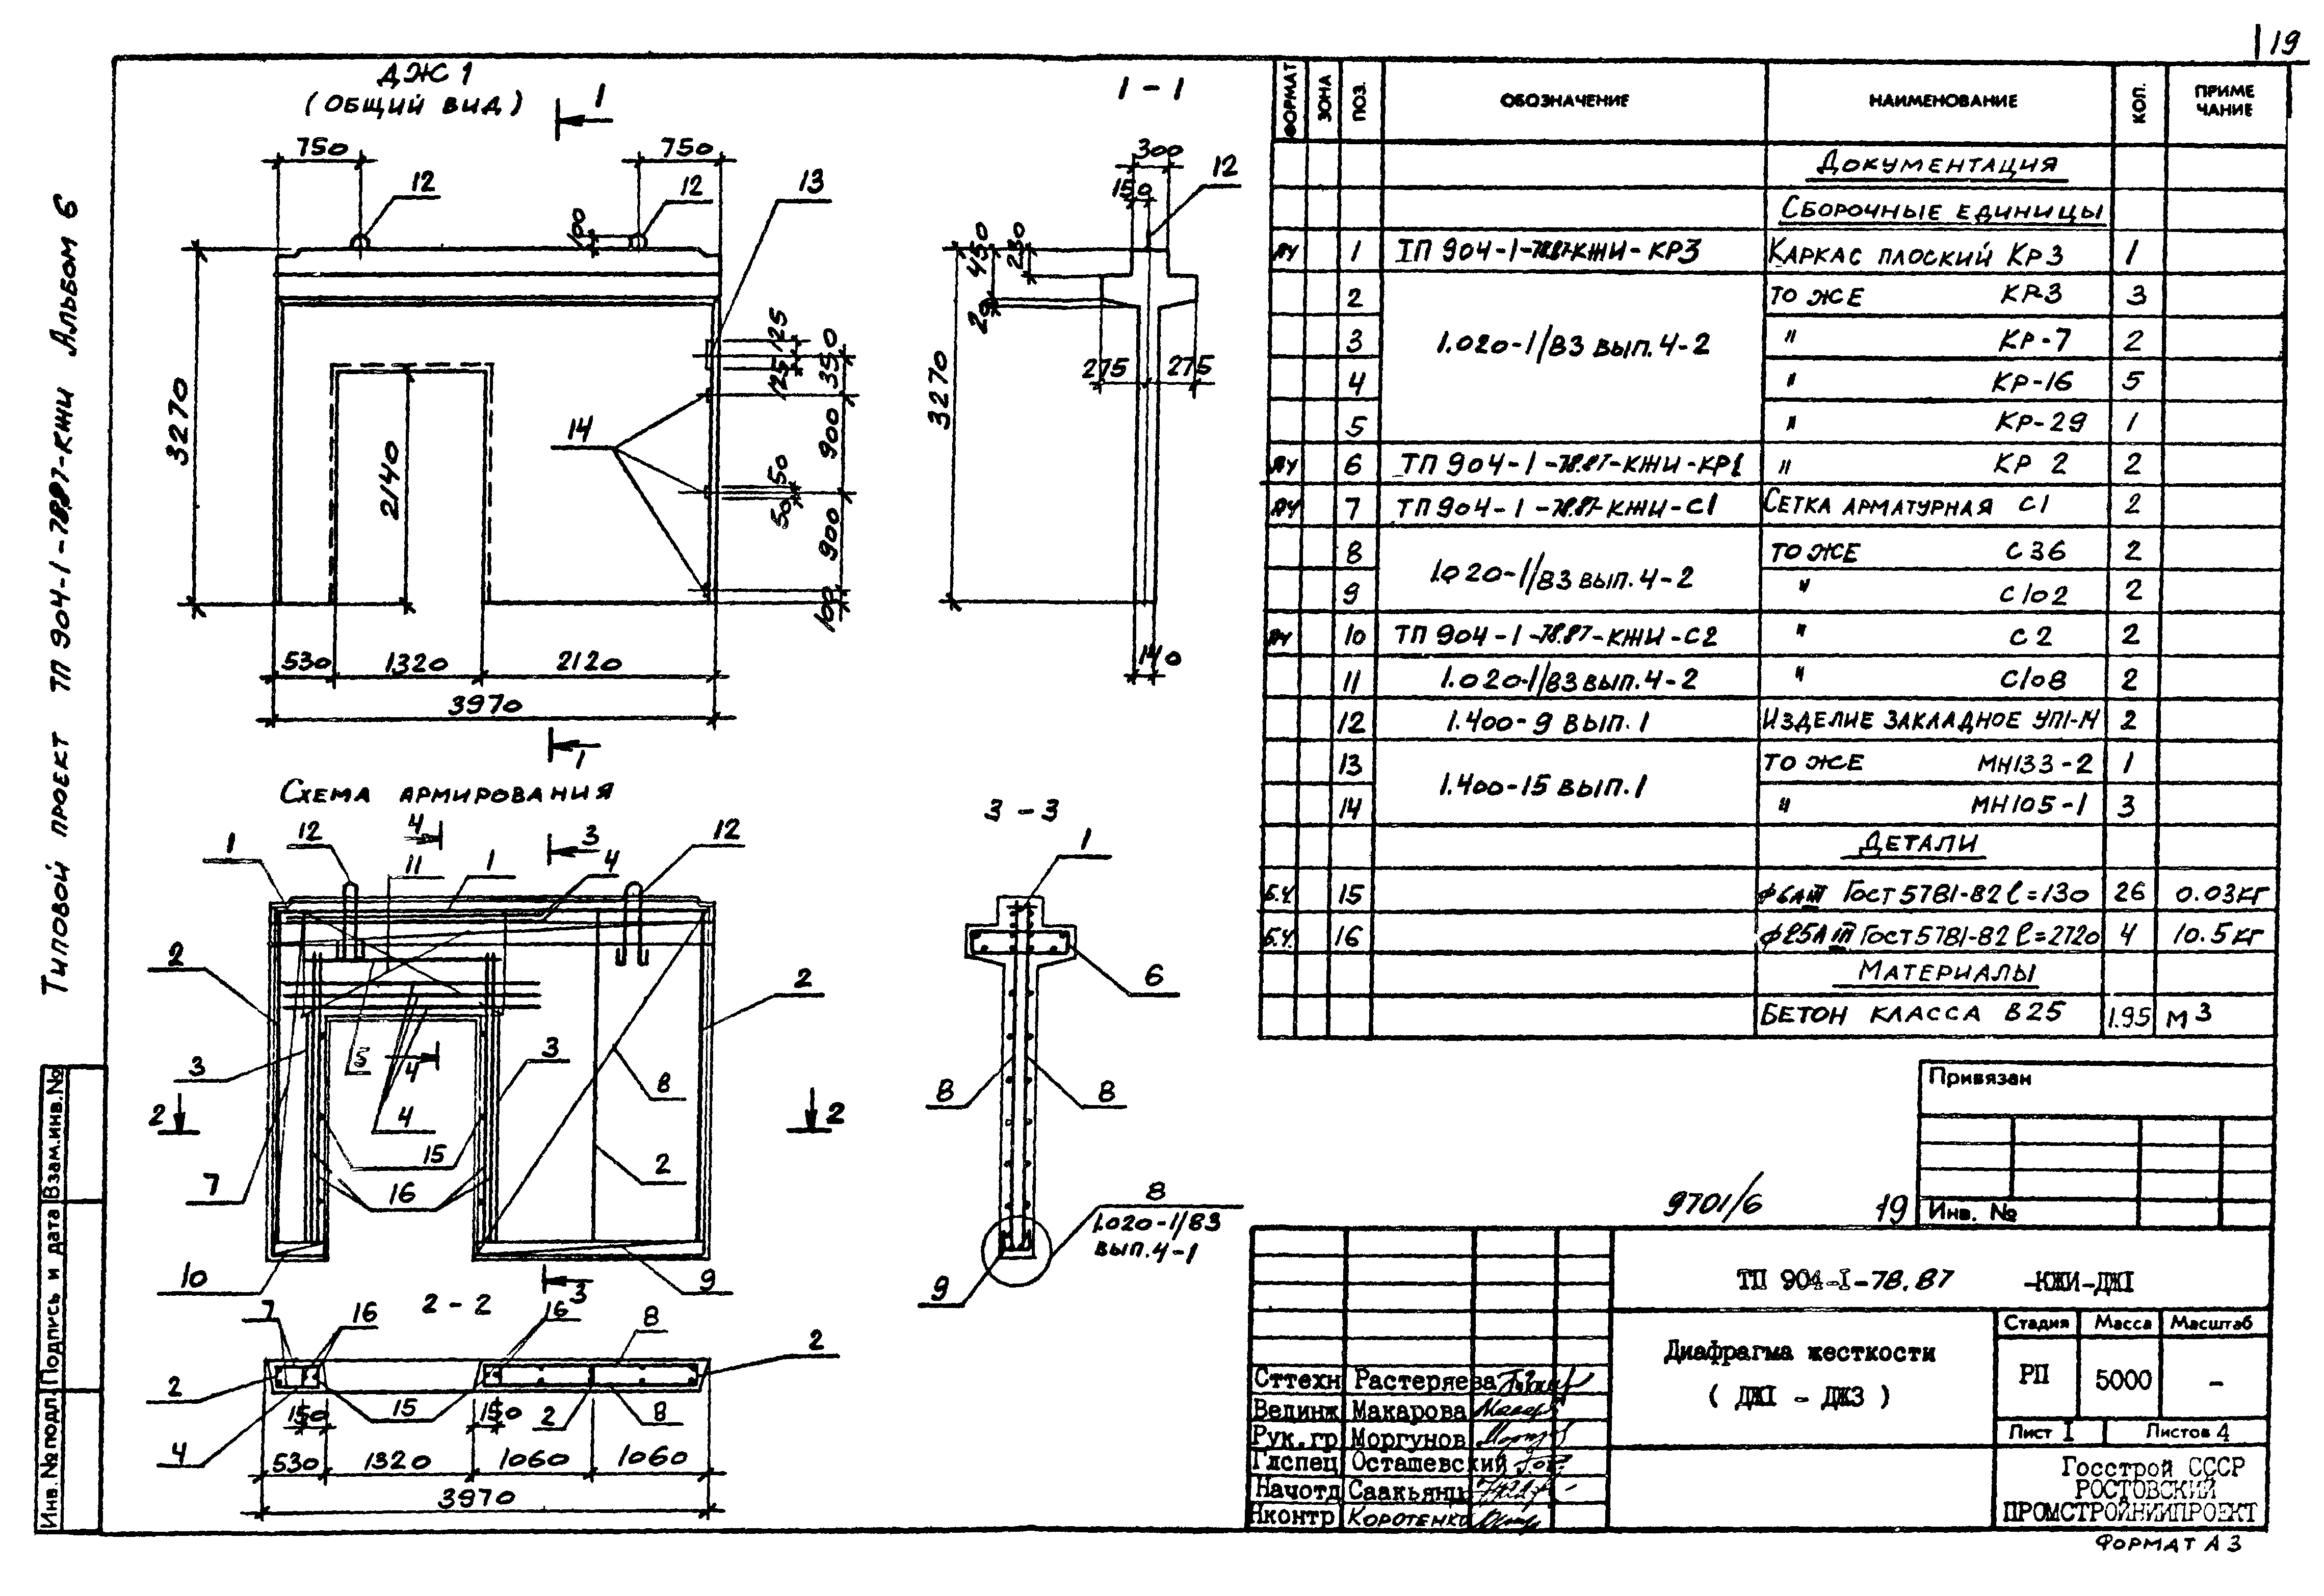 19
Типовой проект ТП 904-1-78.87-КЖИ Альбом 6
ДЖ 1
(Общий вид)
1
750
750
12
12
13
100
3270
2140
14
125
125
350
900
50
50
900
100
530
1320
2120
3970
1
1-1
300
150
12
450
250
20
275
275
3270
140
Схема армирования
1
12
4
11
1
3
4
12
2
2
3
5
4
3
8
4
2
2
15
2
7
16
10
3
9
2-2
7
16
16
8
2
2
150
15
150
2
8
4
530
1320
1060
1060
3970
3-3
1
6
8
8
8
1.020-1/83
вып.4-1
9
ФОРМАТ ЗОНА ПОЗ. ОБОЗНАЧЕНИЕ НАИМЕНОВАНИЕ КОЛ. ПРИМЕ
ЧАНИЕ
Документация
Сборочные единицы
А4 1 ТП 904-1-78.87-КЖИ-КР3 Каркас плоский КР3 1
2 То же КР-3 3
3 1.020-1/83 вып.4-2 " КР-7 2
4 " КР-16 5
5 " КР-29 1
А4 6 ТП 904-1-78.87-КЖИ-КР1 " КР 2 2
А4 7 ТП 904-1-78.87-КЖИ-С1 Сетка арматурная С1 2
8 То же С36 2
1.020-1/83 вып.4-2
9 " С102 2
А4 10 ТП 904-1-78.87-КЖИ-С2 " С2 2
11 1.020-1/83 вып.4-2 " С108 2
12 1.400-9 вып.1 Изделие закладное УП1-14 2
13 То же МН133-2 1
1.400-15 вып.1
14 " МН105-1 3
Детали
Б.Ч. 15 ф6АIII Гост 5781-82 ℓ=130 26 0.03кг
Б.Ч. 16 ф25АIII Гост 5781-82 ℓ=2720 4 10.5кг
Материалы
Бетон класса В25 1.95 м3
Привязан
Инв. №
9701/6 19
ТП 904-I-78.87 -КЖИ-ДЖI
Диафрагма жесткости
( ДЖI - ДЖ3 )
Стадия Масса Масштаб
РП 5000 -
Лист I Листов 4
Госстрой СССР
РОСТОВСКИЙ
ПРОМСТРОЙНИИПРОЕКТ
Сттехн Растеряева
Вединж Макарова
Рук.гр Моргунов
Глспец Осташевский
Начотд Саакьянц
Нконтр Коротенко
Инв. № подл. Подпись и дата Взам.инв.№
Формат А3